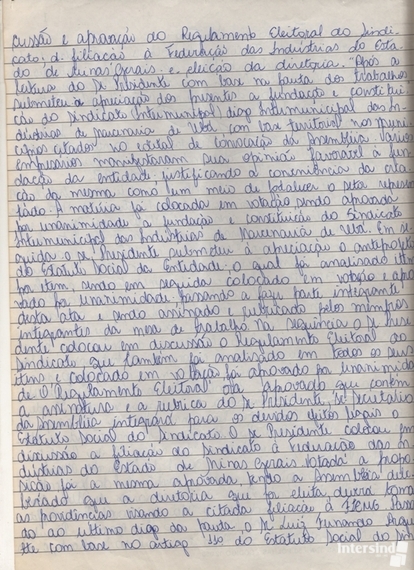 cussão e aprovação do Regulamento Eleitoral do Sindi-
cato, d- filiação à Federação das Indústrias do Esta-
do de Minas Gerais e eleição da diretoria. Após a
leitura do Sr Presidente com base na pauta dos trabalhos
submeteu a apreciação dos presentes a fundação e constitui-
ção do Sindicato (Intermunicipal) digo Intermunicipal das In-
dústrias de Marcenaria de Ubá, com base territorial nos muni-
cípios citados no edital de convocação da Assembléia vários
empresários manifestaram sua opinião favorável à fun-
dação da entidade, justificando a conveniência da cria-
ção da mesma como um meio de fortalecer o setor represen-
tado. A matéria foi colocada em votação sendo aprovada
por unanimidade a fundação e constituição do Sindicato
Intermunicipal das Indústrias de Marcenaria de Ubá. Em se-
guida o sr Presidente submeteu à apreciação o anteprojeto
do Estatuto Social da Entidade, o qual foi analisado item
por item, sendo em seguida colocado em votação e apro-
vado por unanimidade, passando a fazer parte integrante
desta ata e sendo assinado e rubricado pelos membros
integrantes da mesa de trabalho. Na sequência o Sr Presi-
dente colocou em discussão o Regulamento Eleitoral do
Sindicato que também foi analisado em todos os seus
itens e colocado em votação foi aprovado por unanimida-
de O Regulamento Eleitoral ora aprovado que contém
a assinatura e a rubrica do Sr Presidente, Sr Secretário
da Assembléia integrará para os devidos efeitos legais o
Estatuto Social do Sindicato. O Sr Presidente colocou em
discussão a filiação do Sindicato à Federação das In-
dústrias do Estado de Minas Gerais. Votada a propo-
sição foi a mesma aprovada, tendo a Assembléia deli-
berado que a diretoria que for eleita deverá tomar
as providências visando a citada filiação à FIEMG. Passan-
do ao último digo da pauta, o Sr Luiz Fernando
te com base no artigo do Estatuto Social do Sind
Intersind